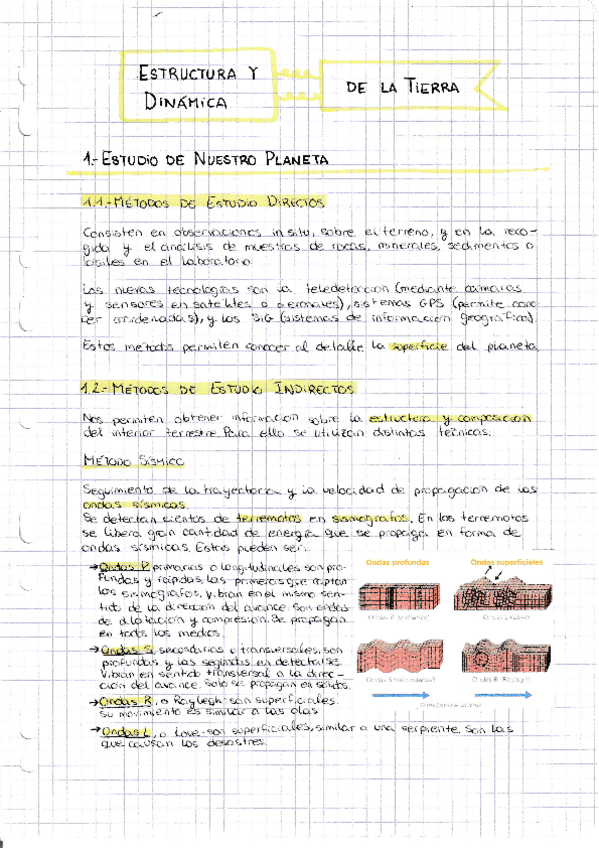 ESTRUCTURA Y
DINÁMICA
DE LA TIERRA
1.- ESTUDIO DE NUESTRO PLANETA
1.1.- MÉTODOS DE ESTUDIO DIRECTOS
Consisten en observaciones in situ, sobre el terreno, y en la reco-
gida y el análisis de muestras de rocas, minerales, sedimentos o
fósiles en el laboratorio.
Las nuevas tecnologías son la teledetección (mediante cámaras
y sensores en satélites o aeronaves), sistemas GPS (permite cono-
cer coordenadas), y los SIG (sistemas de información geográfica).
Estos métodos permiten conocer al detalle la superficie del planeta.
1.2.- MÉTODOS DE ESTUDIO INDIRECTOS
Nos permiten obtener información sobre la estructura y composición
del interior terrestre. Para ello se utilizan distintas técnicas.
MÉTODO SÍSMICO
Seguimiento de la trayectoria y la velocidad de propagación de las
ondas sísmicas.
Se detectan cientos de terremotos en sismógrafos. En los terremotos
se libera gran cantidad de energía que se propaga en forma de
ondas sísmicas. Estas pueden ser:
→ Ondas P, primarias o longitudinales son pro-
fundas y rápidas, las primeras que captan
los sismógrafos, vibran en el mismo sen-
tido de la dirección del avance. Son ondas
de dilatación y compresión. Se propagan
en todos los medios.
→ Ondas S, secundarias o transversales, son
profundas y las segundas en detectarse.
Vibran en sentido transversal a la direc-
ción del avance. Solo se propagan en sólidos.
→ Ondas R, o Rayleigh: son superficiales.
su movimiento es similar a las olas
→ Ondas L, o Love: son superficiales, similar a una serpiente. Son las
que causan los desastres.
Ondas profundas
Ondas superficiales
Ondas P (primarias)
Ondas L (Love)
Ondas S (secundarias)
Ondas R (Rayleigh)